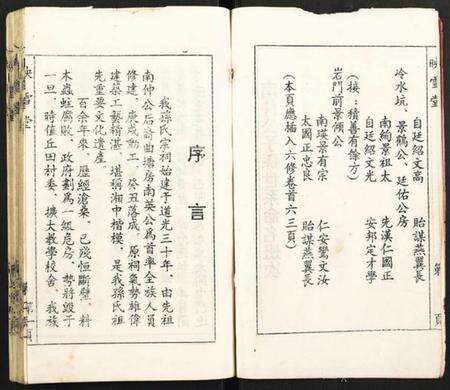 映雪堂
冷水坑、景鶴公、廷佑公房
自廷紹文高 貽謀燕翼長
南絢景祖太 先漢仁國正
自廷紹文光 安邦定才學
（接：積善有餘方）
岩門前景傾公
南瑛景有宗 仁安鸞文汝
太國正忠良 貽謀燕翼長
（本頁應插入六修卷首六三頁）
序言
我孫氏宗祠始建于道光三十年，由先祖
南仲公后裔曲塘房南英公為首率全族人員
修建。庚戌動工，癸丑落成。原祠氣勢雄偉
建築工藝精湛，堪稱湘中楷模，是我孫氏祖
先重要文化遺產。
百余年來，歷經滄桑，已殘恒斷壁，料
木蟲蛀腐敗，政府劃為一級危房，勢將毀于
一旦。時值丘田村委，擴大教學校舍，我族
映雪堂